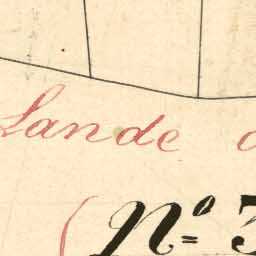 Lande
( Nº 3